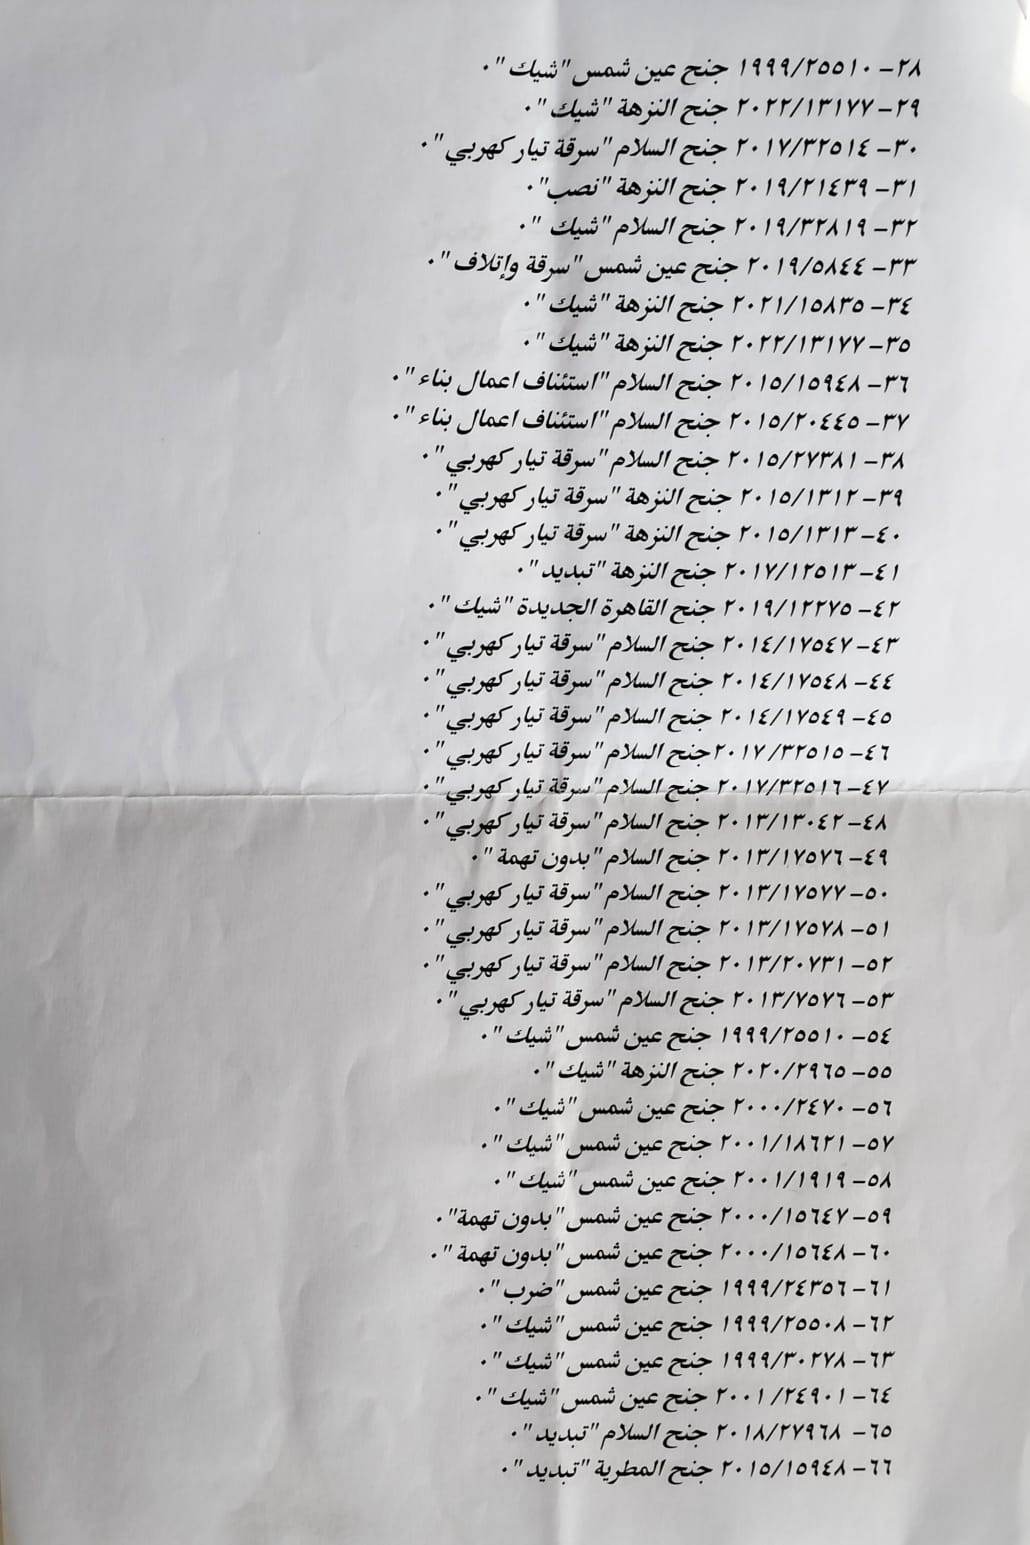 ٢٨- ١٩٩٩/٢٥٥١٠ جنح عين شمس "شيك".
٢٩- ٢٠٢٢/١٣١٧٧ جنح النزهة "شيك".
٣٠- ٢٠١٧/٣٢٥١٤ جنح السلام "سرقة تيار كهربي".
٣١- ٢٠١٩/٢١٤٣٩ جنح النزهة "نصب".
٣٢- ٢٠١٩/٣٢٨١٩ جنح السلام "شيك".
٣٣- ٢٠١٩/٥٨٤٤ جنح عين شمس "سرقة وإتلاف".
٣٤- ٢٠٢١/١٥٨٣٥ جنح النزهة "شيك".
٣٥- ٢٠٢٢/١٣١٧٧ جنح النزهة "شيك".
٣٦- ٢٠١٥/١٥٩٤٨ جنح السلام "استئناف اعمال بناء".
٣٧- ٢٠١٥/٢٠٤٤٥ جنح السلام "استئناف اعمال بناء".
٣٨- ٢٠١٥/٢٧٣٨١ جنح السلام "سرقة تيار كهربي".
٣٩- ٢٠١٥/١٣١٢ جنح النزهة "سرقة تيار كهربي".
٤٠- ٢٠١٥/١٣١٣ جنح النزهة "سرقة تيار كهربي".
٤١- ٢٠١٧/١٢٥١٣ جنح النزهة "تبديد".
٤٢- ٢٠١٩/١٢٢٧٥ جنح القاهرة الجديدة "شيك".
٤٣- ٢٠١٤/١٧٥٤٧ جنح السلام "سرقة تيار كهربي".
٤٤- ٢٠١٤/١٧٥٤٨ جنح السلام "سرقة تيار كهربي".
٤٥- ٢٠١٤/١٧٥٤٩ جنح السلام "سرقة تيار كهربي".
٤٦- ٢٠١٧/٣٢٥١٥ جنح السلام "سرقة تيار كهربي".
٤٧- ٢٠١٧/٣٢٥١٦ جنح السلام "سرقة تيار كهربي".
٤٨- ٢٠١٣/١٣٠٤٢ جنح السلام "سرقة تيار كهربي".
٤٩- ٢٠١٣/١٧٥٧٦ جنح السلام "بدون تهمة".
٥٠- ٢٠١٣/١٧٥٧٧ جنح السلام "سرقة تيار كهربي".
٥١- ٢٠١٣/١٧٥٧٨ جنح السلام "سرقة تيار كهربي".
٥٢- ٢٠١٣/٢٠٧٣١ جنح السلام "سرقة تيار كهربي".
٥٣- ٢٠١٣/٧٥٧٦ جنح السلام "سرقة تيار كهربي".
٥٤- ١٩٩٩/٢٥٥١٠ جنح عين شمس "شيك".
٥٥- ٢٠٢٠/٢٩٦٥ جنح النزهة "شيك".
٥٦- ٢٠٠٠/٢٤٧٠ جنح عين شمس "شيك".
٥٧- ٢٠٠١/١٨٦٢١ جنح عين شمس "شيك".
٥٨- ٢٠٠١/١٩١٩ جنح عين شمس "شيك".
٥٩- ٢٠٠٠/١٥٦٤٧ جنح عين شمس "بدون تهمة".
٦٠- ٢٠٠٠/١٥٦٤٨ جنح عين شمس "بدون تهمة".
٦١- ١٩٩٩/٢٤٣٥٦ جنح عين شمس "ضرب".
٦٢- ١٩٩٩/٢٥٥٠٨ جنح عين شمس "شيك".
٦٣- ١٩٩٩/٣٠٢٧٨ جنح عين شمس "شيك".
٦٤- ٢٠٠١/٢٤٩٠١ جنح عين شمس "شيك".
٦٥- ٢٠١٨/٢٧٩٦٨ جنح السلام "تبديد".
٦٦- ٢٠١٥/١٥٩٤٨ جنح المطرية "تبديد".